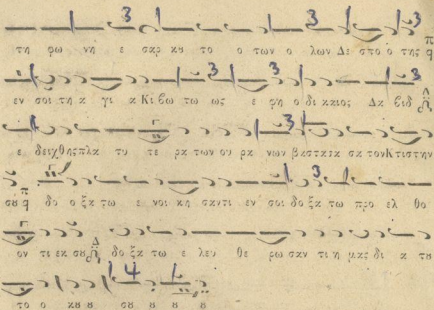 τη φω νη ε σκρ κα το ο των ο λων Δε σπο ο της
εν σοι τη α γι α Κι βω τω ως ε φη ο δι και ος Δα βιδ
ε δειχθης πλα τυ τε ρα των ου ρα νων βαστασα σα τον Κτιστην
σου δο ο ξα τω ε νοι κη σαντι εν σοι δο ξα τω προ ελ θο
ον τι εκ σου δο ξα τω ε λευ θε ρω σαν τι η μας δι α του
το ο κου ου σου ου ου ου